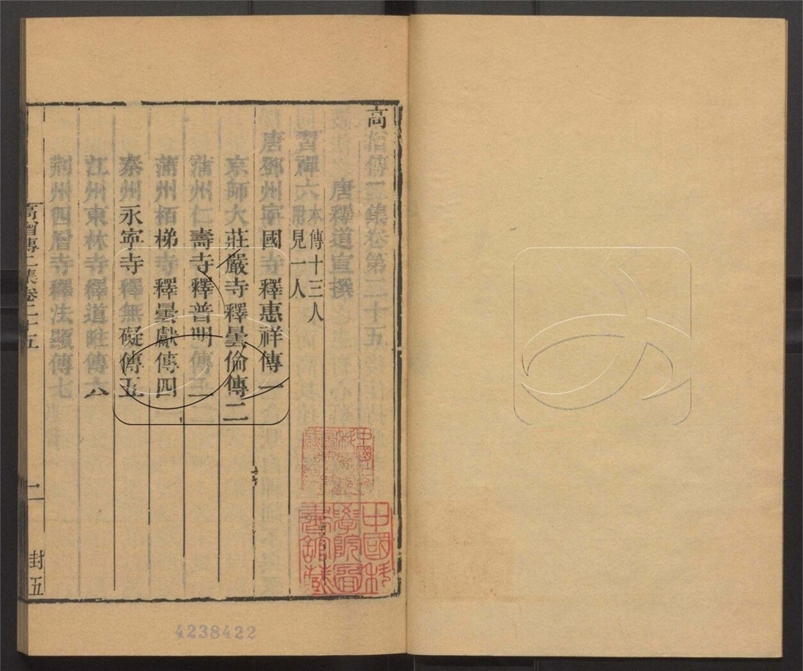 高僧傳二集卷第二十五
唐釋道宣撰
習禪六 本傳十三人
附見一人
唐鄧州寧國寺釋惠祥傳一
京師大莊嚴寺釋曇倫傳二
蒲州仁壽寺釋普明傳三
蒲州栢梯寺釋曇獻傳四
秦州永寧寺釋無礙傳五
江州東林寺釋道暀傳六
荊州四層寺釋法顯傳七
高僧傳二集卷二十五
一
封五
中國科學院圖書館藏
4238422